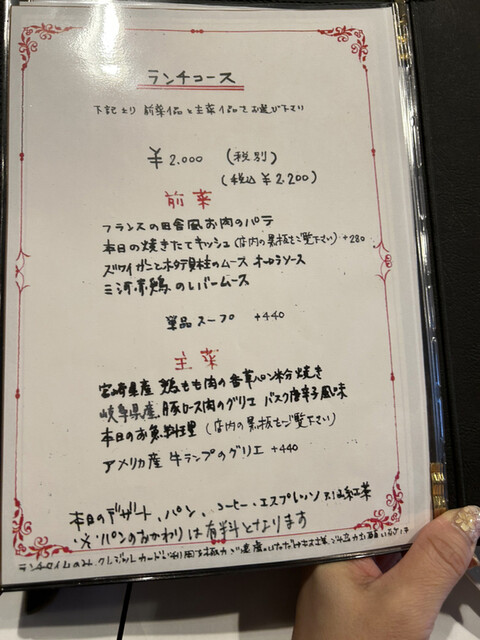 ランチコース
下記より 前菜1品と主菜1品をお選び下さい
¥2.000 (税別)
(税込¥2.200)
前菜
フランスの田舎風お肉のパテ
本日の焼きたてキッシュ(店内の黒板をご覧下さい) +280
ズワイガニとホタテ貝柱のムース オーロラソース
三河赤鶏のレバームース
単品スープ +440
主菜
宮崎県産 鶏もも肉の香草パン粉焼き
岐阜県産 豚ロース肉のグリエ バスク唐辛子風味
本日のお魚料理 (店内の黒板をご覧下さい)
アメリカ産 牛ランプのグリエ +440
本日のデザート、パン、コーヒー、エスプレッソ又は紅茶
※パンのおかわりは有料となります
ランチタイムのみ、クレジットカードご利用を極力ご遠慮いただけます様、ご協力お願い